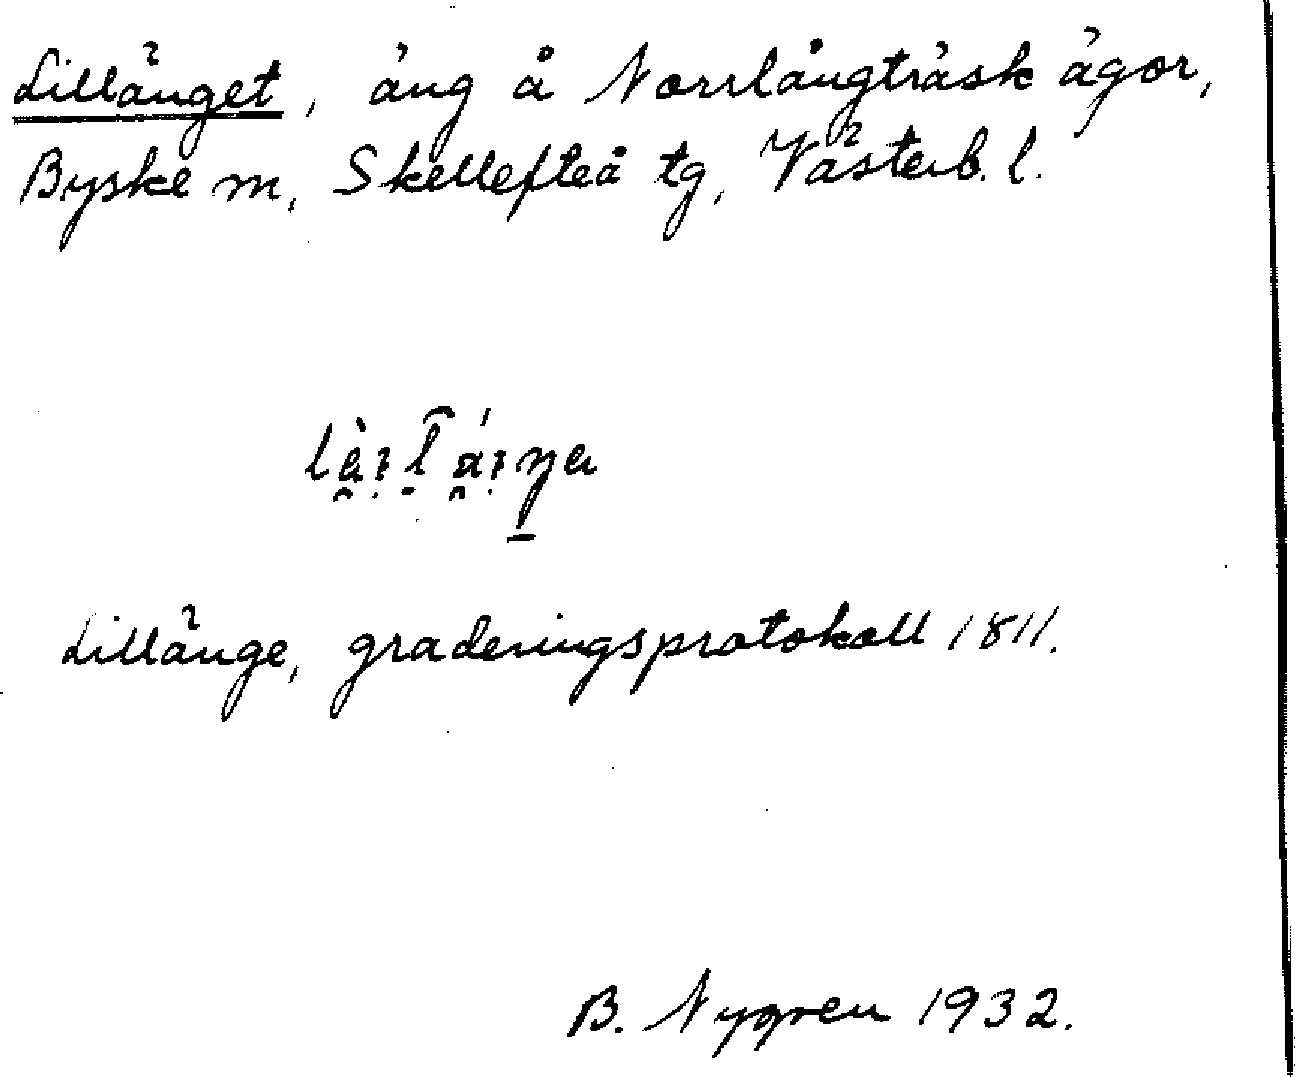 Lillänget, äng å Norrlångträsk ägor,
Byske sn, Skellefteå tg, Västerb. l.
Lillänge, graderingsprotokoll 1811.
B. Nygren 1932.